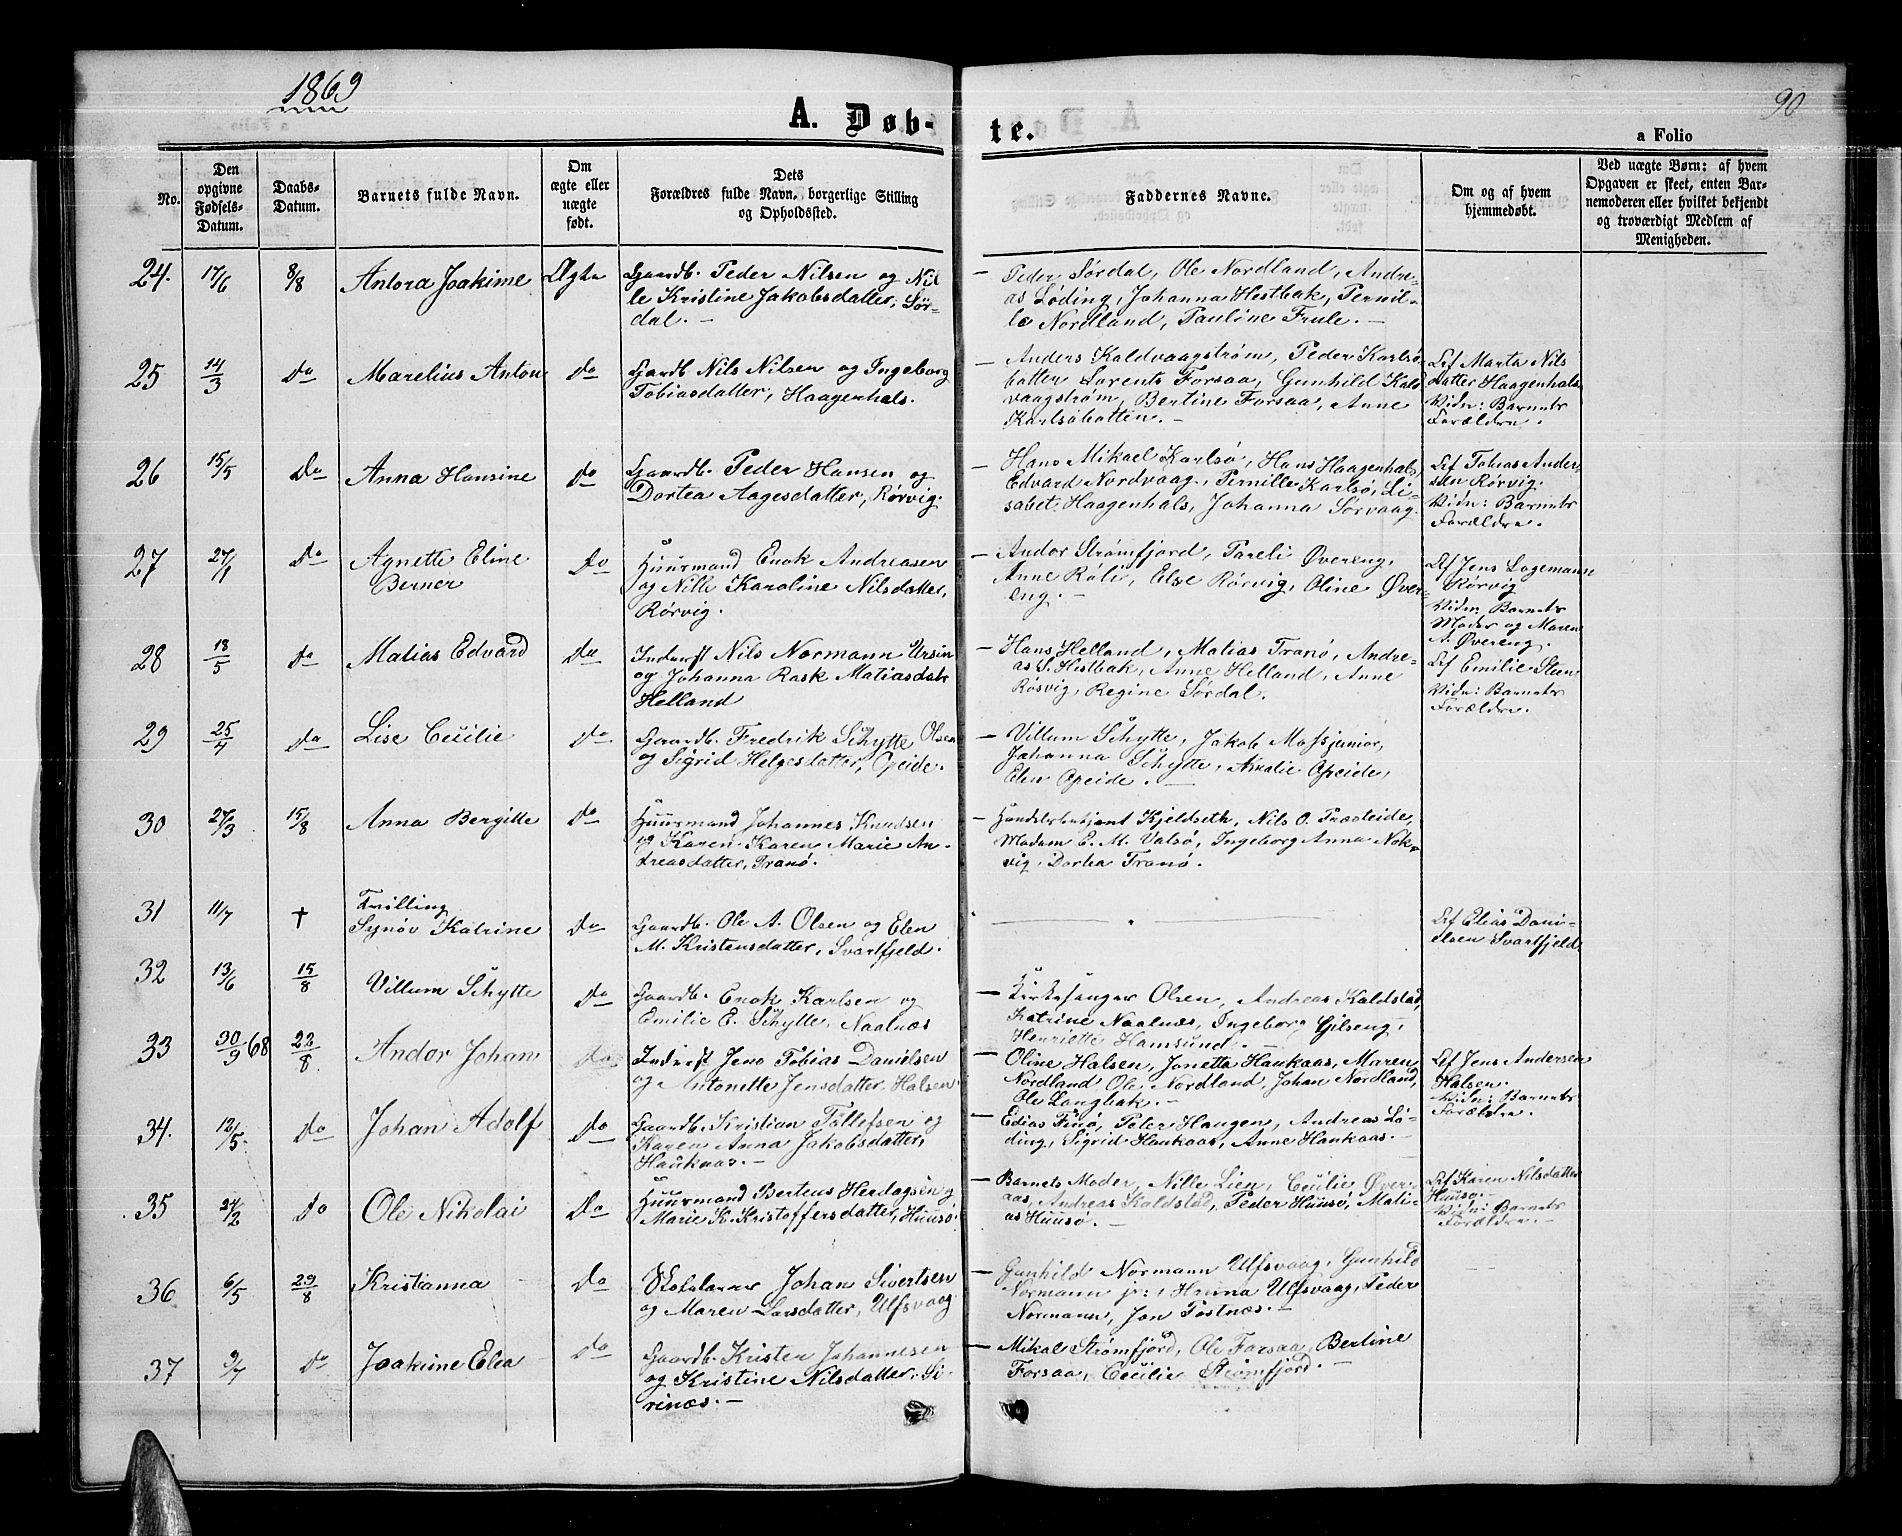 1869
90
A. Døb-
te.
a Folio
No.
Den
opgivne
Fødsels-
Datum.
Daabs-
Datum.
Barnets fulde Navn.
Om
ægte eller
uægte
født.
Dets
Forældres fulde Navn, borgerlige Stilling
og Opholdssted.
Faddernes Navne.
Om og af hvem
hjemmedøbt.
Ved uægte Børn: af hvem
Opgaven er skeet, enten Bar-
nemoderen eller hvilket bekjendt
og troværdigt Medlem af
Menigheden.
24. 17/6 8/8 Antora Joakime Ægte
Gaardb. Peder Nilsen og Nil
le Kristine Jakobsdatter, Sør-
dal. —
— Peder Sørdal, Ole Nordland, Andre-
as Løding, Johanna Hestbak, Pernil-
le Nordland, Pauline Frule. —
25 14/3 Do Marelius Anton Do
Gaardb Nils Nilsen og Ingeborg
Tobiasdatter, Haagenhals.
— Anders Kaldvaagstrøm, Peder Karlsø-
batten Lorents Forsaa, Gunhild Kald
vaagstrøm, Bertine Forsaa, Anne
Karlsøbotten. —
Af Marta Nils
datter Haagenhals
Vidn: Barnets
Forældre.
26 15/5 Do Anna Hansine Do
Gaardb. Peder Hansen og
Dortea Aagesdatter, Rørvig.
— Hans Mikael Karlsø, Hans Haagenhals,
Edvard Nordvaag, Pernille Karlsø, Li-
sabet Haagenhals, Johanna Sørvaag.
Af Tobias Ander
sen Rørvig.
Vidn: Barnets
Forældre.
27 27/1 Do Agnette Eline
Berner
Do
Huurmand Enok Andreasen
og Nille Karoline Nilsdatter,
Rørvig.
— Andor Strømfjord, Pareli Øvereng,
Anne Røli, Else Rørvig, Oline Øver-
eng. —
Af Jens Lagemann
Rørvig
Vidn, Barnets
Moder og Maren
A. Øvereng.
28 18/5 Do Matias Edvard Do
Inderst Nils Normann Ursin
og Johanna Rask Matiasdatr
Helland
— Hans Helland, Matias Tranø, Andre-
as S. Hestbak, Anne Helland, Anne
Røsvig, Regine Sørdal.
Af Emilie Steen
Vidn: Barnets
Forældre.
29 25/4 Do Lise Cecilie Do
Gaardb. Fredrik Schytte Olsen
og Sigrid Helgesdatter, Opeide.
— Villum Schytte, Jakob Mossjunior,
Johanna Schytte, Amalie Opeide,
Elen Opeide. —
30 27/3 15/8 Anna Bergitte Do
Huurmand Johannes Knudsen
og Karen Karen Marie An-
dreasdatter, Tranø.
— Handelsbetjent Kjeldseth, Nils O. Træleide,
Madam E. M. Valsø, Ingeborg Anna Nok-
vig, Dortea Tranø.
31 11/7 † Tvilling
Synøv Katrine Do
Gaardb. Ole A. Olsen og Elen
M. Kristensdatter, Svartfjeld.
Af Elias Dani-
elsen Svartfjeld
32 13/6 15/8 Villum Schytte Do
Gaardb. Enok Karlsen og
Emilie E. Schytte, Naalnæs
— Kirkesanger Olsen, Andreas Kaldstad,
Katrine Naalnæs, Ingeborg Gilseng,
Henriette Hamsund. —
33 30/9 68 22/8 Andor Johan Do
Inderst Jens Tobias Danielsen
og Antonette Jensdatter, Halsen.
— Oline Halsen, Jonetta Haukaas, Maren
Nordland Ole Nordland, Johan Nordland,
Ole Langbak. —
Af Jens Andersen
Halsen.
Vidn: Barnets
Forældre.
34. 12/5 Do Johan Adolf Do
Gaardb. Kristian Tollefsen og
Karen Anna Jakobsdatter,
Haukaas. —
— Edias Finø, Peter Haugen, Andreas Lø-
ding, Sigrid Haukaas, Anne Haukaas. —
35 24/2 Do Ole Nikolai Do
Huurmand Berteus Herdagsen og
Marie K. Kristoffersdatter, Huusø.
— Barnets Moder, Nille Lien, Cecilie Øver-
aas, Andreas Kaldstad, Peder Huusø, Mati-
as Huusø. —
Af Karen Nilsdatter
Huusø. —
Vidn: Barnets
Forældre. —
36 6/5 29/8 Kristianna Do
Skolelærer Johan Sivertsen
og Maren Larsdatter, Ulfsvaag
— Gunhild Normann Ulfsvaag, Gunhild
Normann jr:, Hanna Ulfsvaag, Peder
Normann, Jon Tostnæs. —
37 9/7 Do Joakime Elea Do
Gaardb. Krister Johannesen
og Kristine Nilsdatter, Si-
rinæs. —
— Mikal Strømfjord, Ole Forsaa, Bertine
Forsaa, Cecilie Strømfjord. —